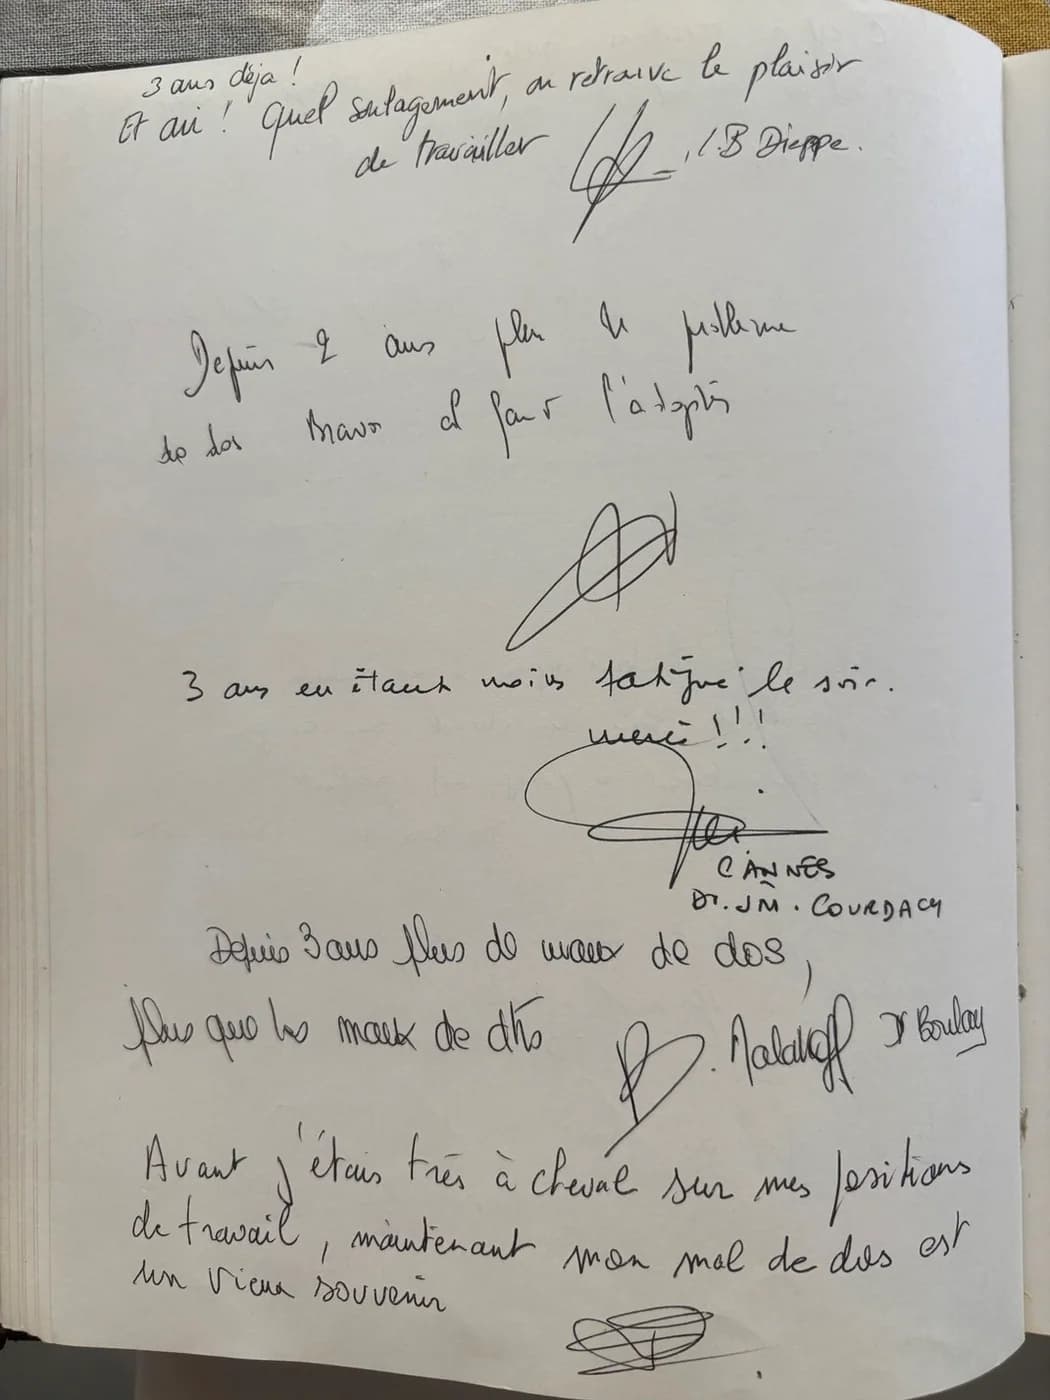 3 ans déja !
Et oui ! Quel soulagement, on retrouve le plaisir
de travailler
B Dieppe.
Depuis 2 ans plus de problème
de dos Bravo il faut l'adopter
3 ans en étant moins fatigué le soir.
merci !!!
CANNES
Dr. JM. COURDACY
Depuis 3 ans plus de maux de dos,
plus que les maux de dts
Malakoff Dr Boulay
Avant j'étais très à cheval sur mes positions
de travail, maintenant mon mal de dos est
un vieux souvenir